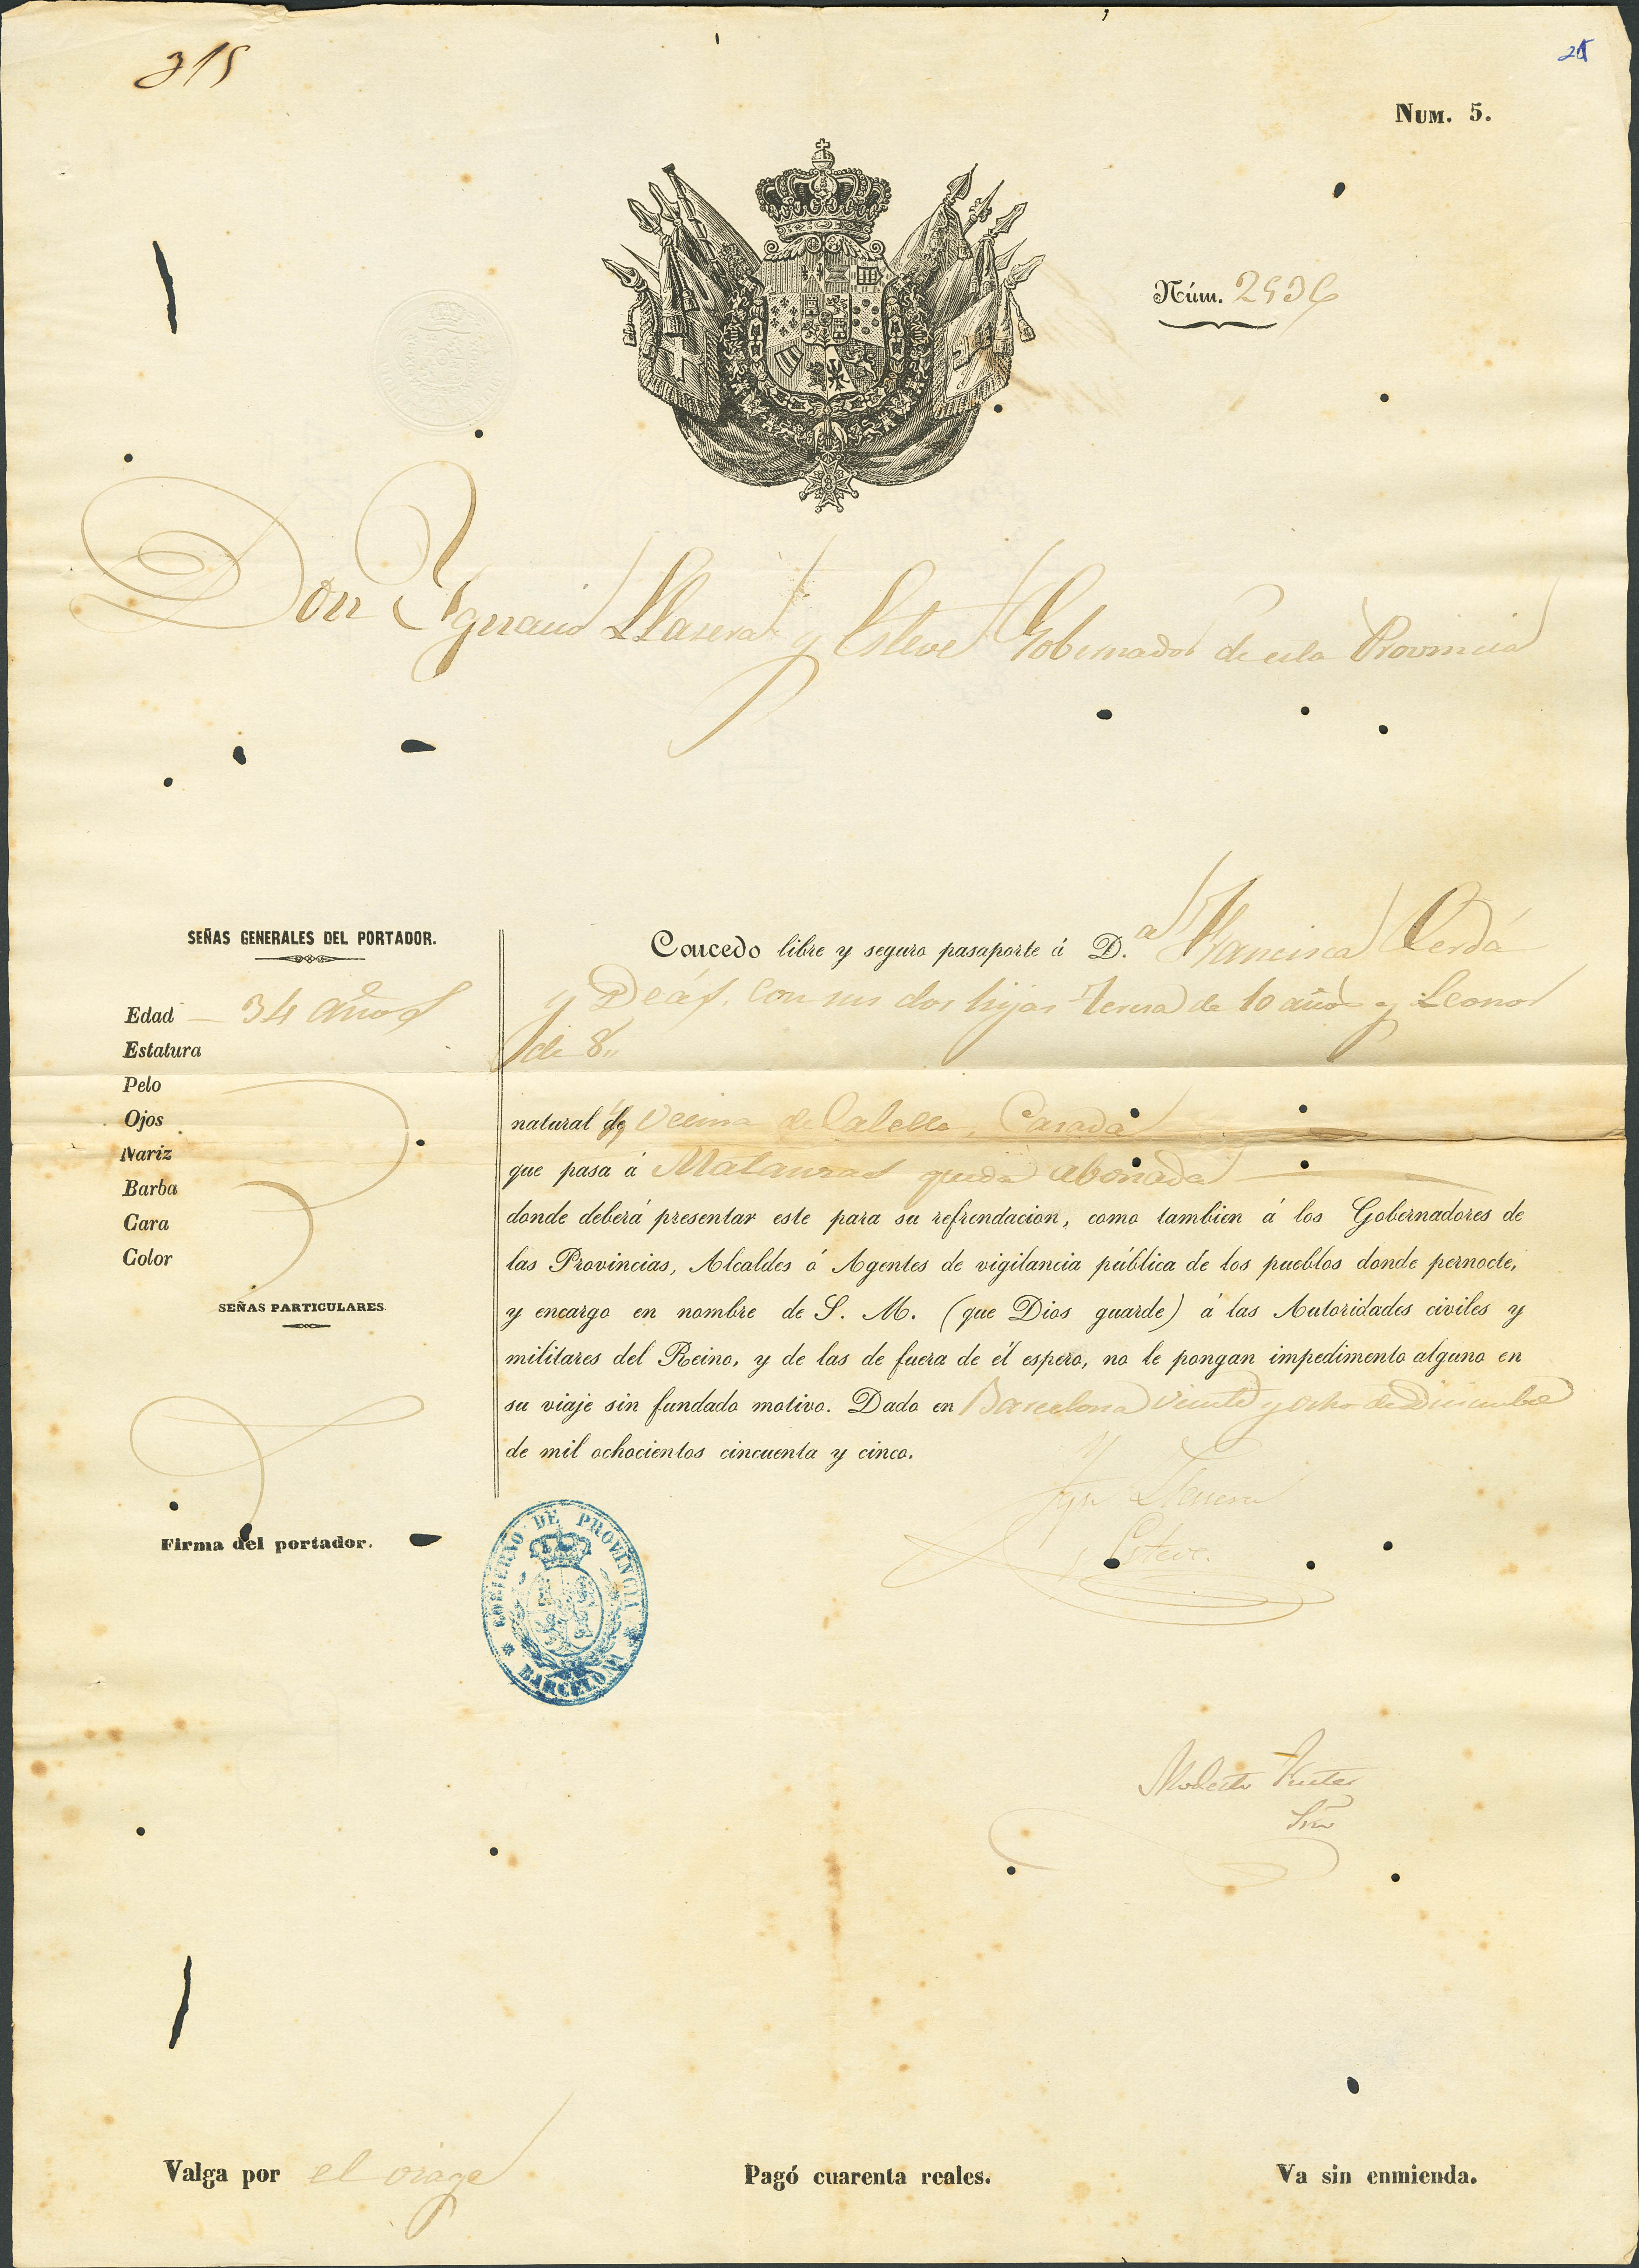 315
25
NUM. 5.
Núm. 2536
Don Ygnacio Llasera y Esteve Gobernador de esta Provincia
SEÑAS GENERALES DEL PORTADOR.
Edad 34 años
Estatura
Pelo
Ojos
Nariz
Barba
Cara
Color
SEÑAS PARTICULARES.
Firma del portador.
Concedo libre y seguro pasaporte á D.a Francisca Cerdá
y Deás, con sus dos hijas Teresa de 10 años y Leonor
de 8"
natural de y vecina de Calella, Casada
que pasa á Matanzas queda abonada
donde deberá presentar este para su refrendacion, como tambien á los Gobernadores de
las Provincias, Alcaldes ó Agentes de vigilancia pública de los pueblos donde pernocte,
y encargo en nombre de S. M. (que Dios guarde) á las Autoridades civiles y
militares del Reino, y de las de fuera de él espero, no le pongan impedimento alguno en
su viaje sin fundado motivo. Dado en Barcelona veinte y ocho de Diciembre
de mil ochocientos cincuenta y cinco.
Ygn Llasera
y Esteve.
GOBIERNO DE PROVINCIA
BARCELONA
Modesto
Srio
Valga por el viage
Pagó cuarenta reales.
Va sin enmienda.